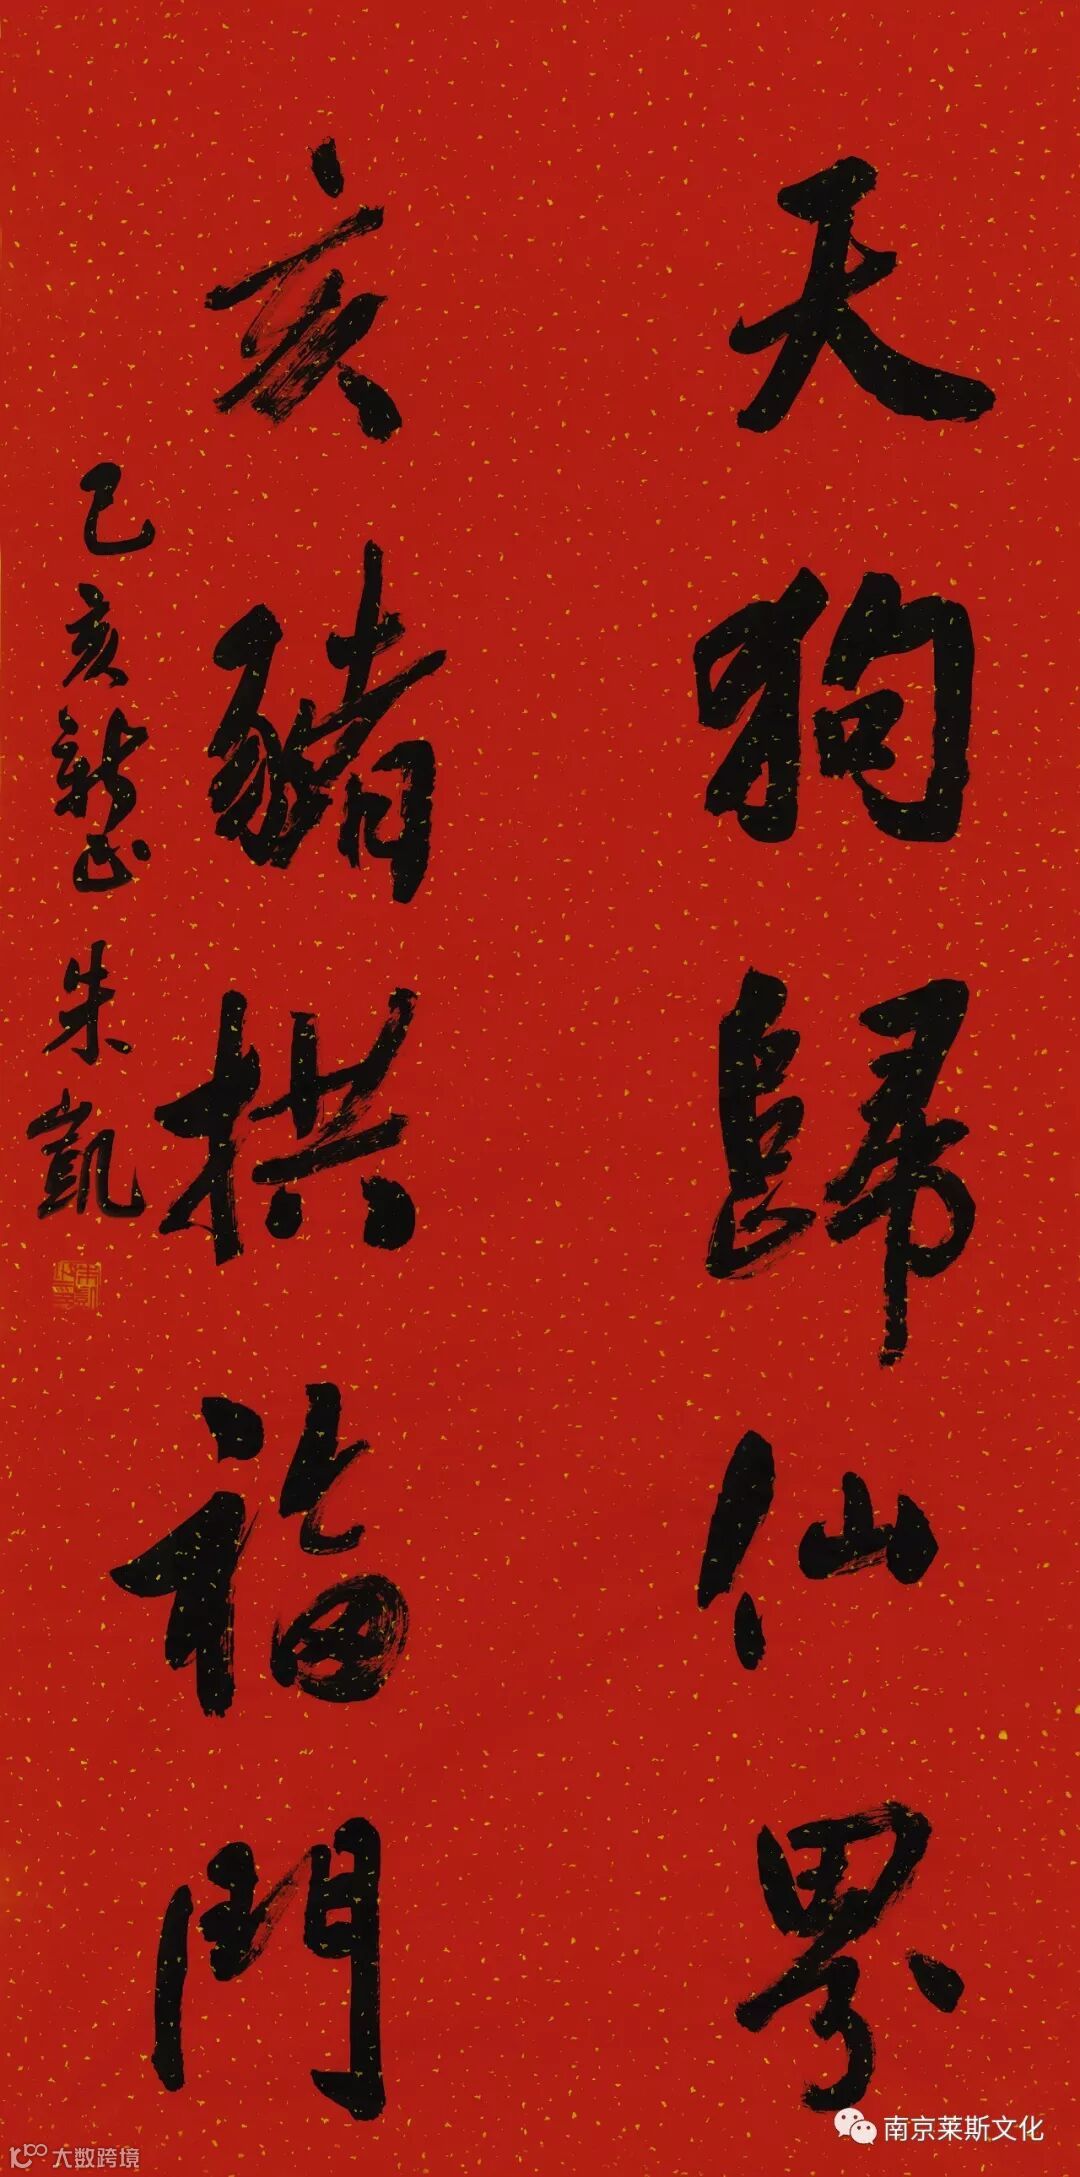 天狗歸仙界
亥豬拱福門
己亥新正朱凱
南京莱斯文化
大数跨境